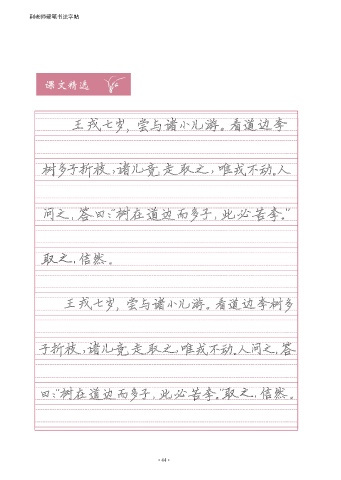 田老师硬笔书法字帖
课文精选
王戎七岁，尝与诸小儿游。看道边李
树多子折枝，诸儿竞走取之，唯戎不动。人
问之，答曰：“树在道边而多子，此必苦李。”
取之，信然。
王戎七岁，尝与诸小儿游。看道边李树多
子折枝，诸儿竞走取之，唯戎不动。人问之，答
曰：“树在道边而多子，此必苦李。”取之，信然。
· 44 ·